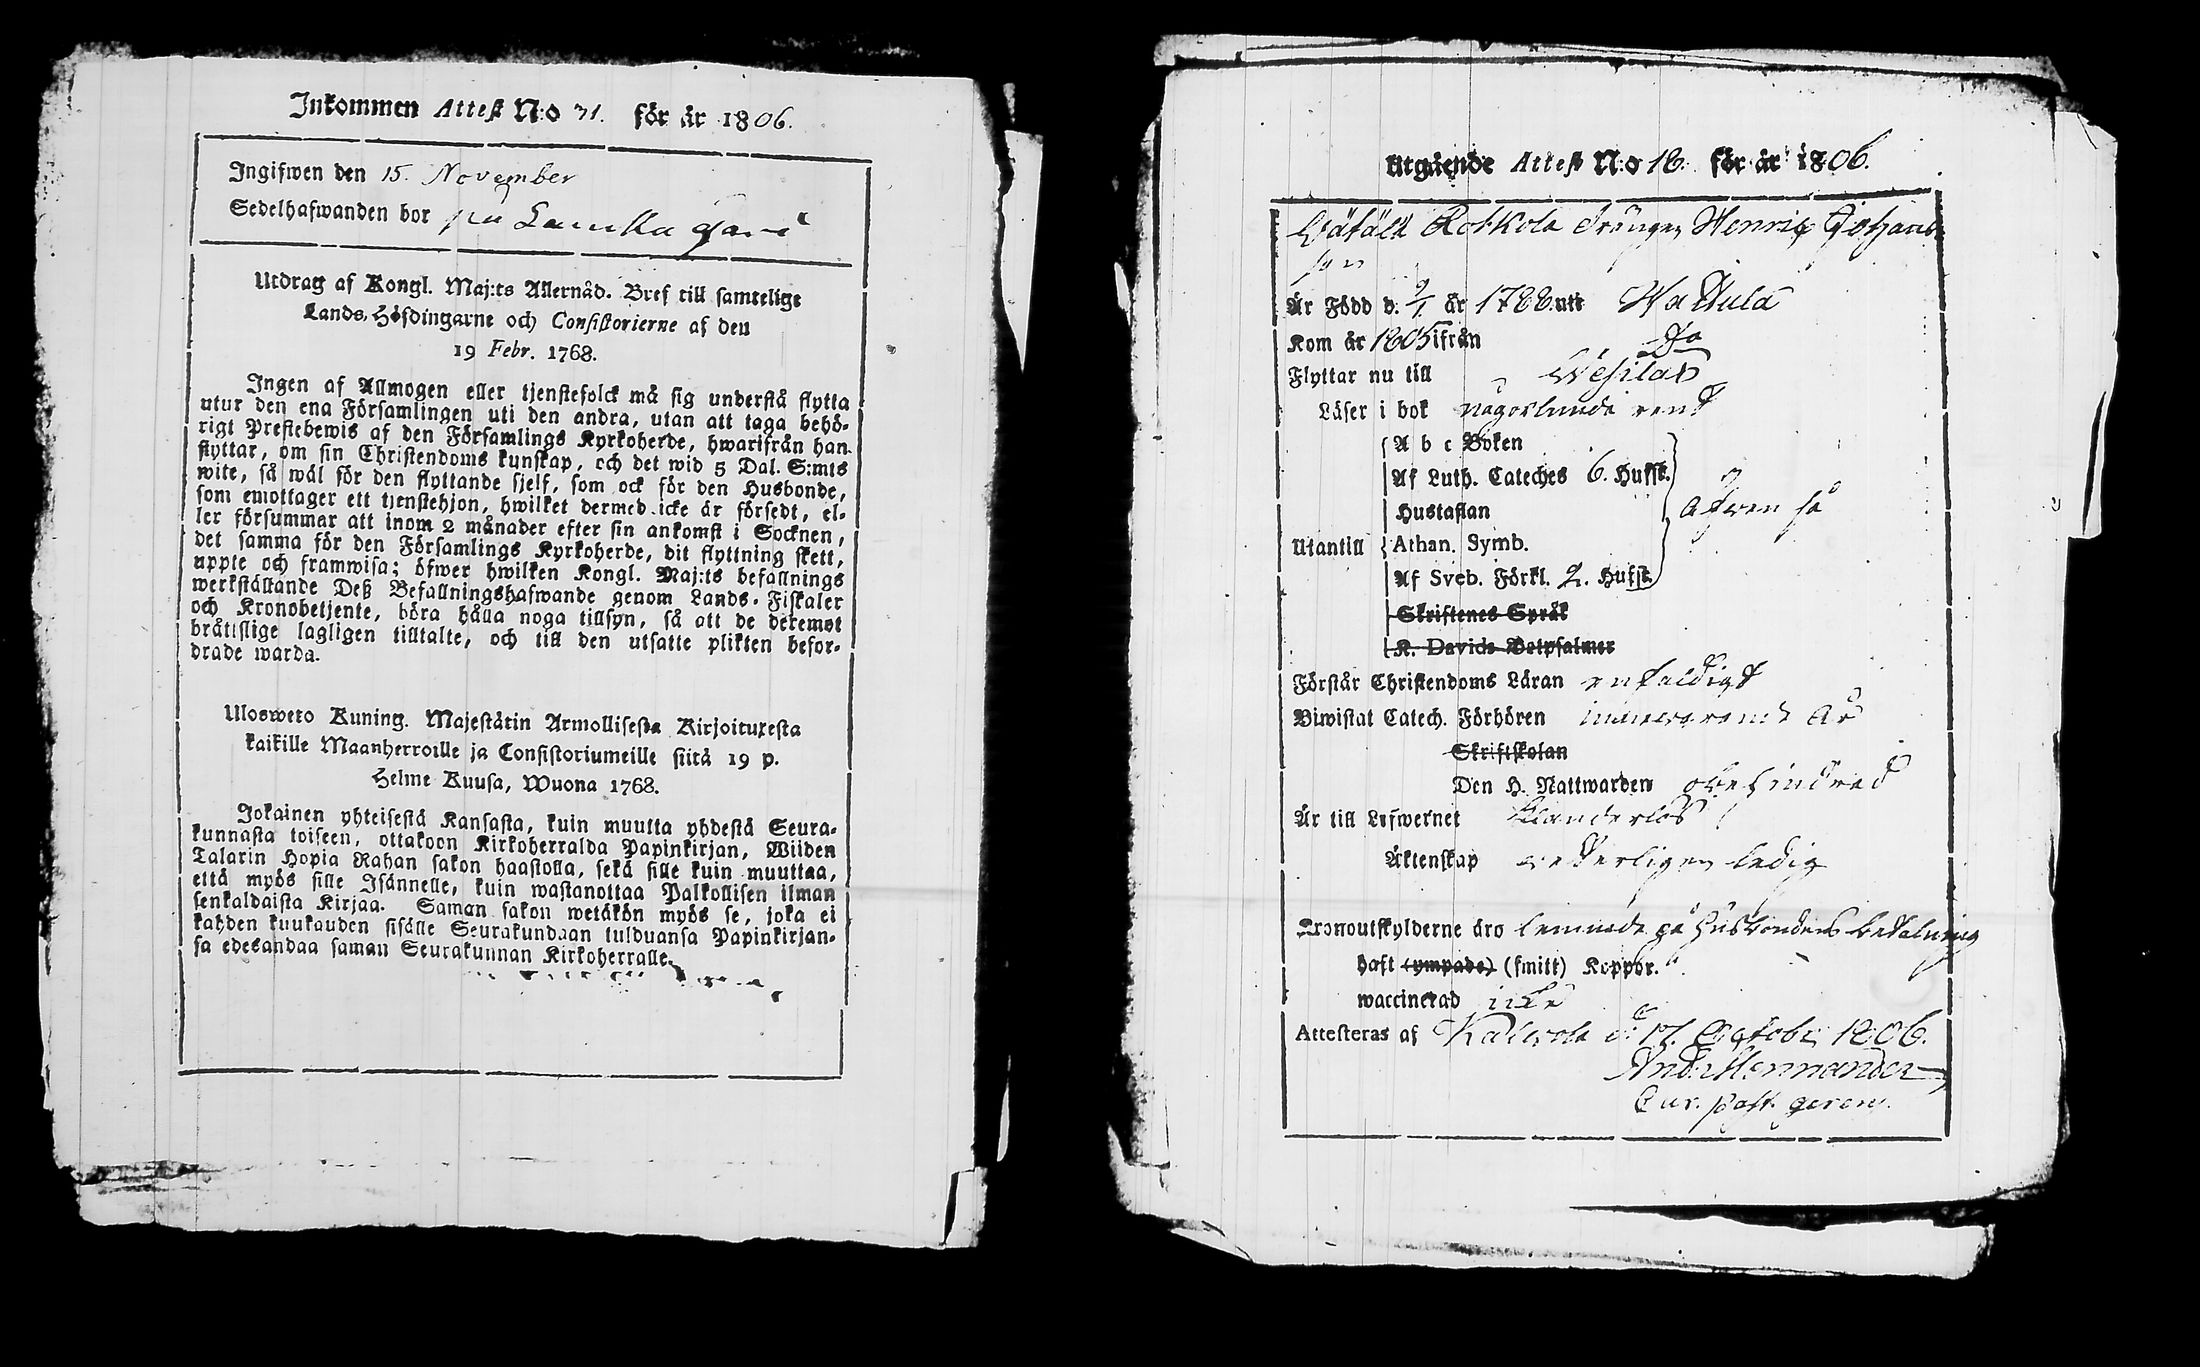 Inkommen Attest N:o 71. för år 1806.
Ingifwen den 15. November
Sedelhafwanden bor på Laukko gård
Utdrag af Kongl. Maj:ts Allernåd. Bref till samtelige
Lands-Höfdingarne och Consistorierne af den
19 Febr. 1768.
Ingen af Allmogen eller tjenstefolck må sig understå flytta
utur den ena Församlingen uti den andra, utan att taga behö-
rigt Prestebewis af den Församlings Kyrkoherde, hwarifrån han
flyttar, om sin Christendoms kunskap, och det wid 5 Dal. S:mts
wite, så wäl för den flyttande sjelf, som ock för den Husbonde,
som emottager ett tjenstehjon, hwilket dermed icke är försedt, el-
ler försummar att inom 2 månader efter sin ankomst i Socknen,
det samma för den Församlings Kyrkoherde, dit flyttning skett,
uppte och framwisa; öfwer hwilken Kongl. Maj:ts befallnings
werkställande Deß Befallningshafwande genom Lands-Fiskaler
och Kronobetjente, böra hålla noga tillsyn, så att de deremot
bråttslige lagligen tilltalte, och till den utsatte plikten befor-
drade warda.
Ulosweto Kuning. Majestätin Armollisesta Kirjoituxesta
kaikille Maanherroille ja Consistoriumeille siitä 19 p.
Helme Kuusa, Wuona 1768.
Jokainen yhteisestä Kansasta, kuin muutta yhdestä Seura-
kunnasta toiseen, ottakoon Kirkoherralda Papinkirjan, Wiiden
Talarin Hopia Rahan sakon haastolla, sekä sille kuin muuttaa,
että myös sille Isännelle, kuin wastanottaa Palkollisen ilman
senkaldaista Kirjaa. Saman sakon wetäkön myös se, joka ei
kahden kuukauden sisälle Seurakundaan tulduansa Papinkirjan-
sa edesandaa saman Seurakunnan Kirkoherralle.
Utgående Attest N:o 18. för år 1806.
Rotkola Drängen Henric Johans
son
Är Född d. 9/1 år 1788 uti Wattula
Kom år 1805 ifrån Do
Flyttar nu till Wesilax
Läser i bok någorlunda rent
A b c Boken
Af Luth. Cateches 6. Hufst.
Hustaflan
äfwen så
Utantill Athan. Symb.
Af Sveb. Förkl. 2. Hufst.
Skriftenes Språk
K. Davids Botpsalmer
Förstår Christendoms Läran enfaldigt
Biwistat Catech. Förhören innewarande år
Skriftskolan
Den H. Nattwarden obehindrad
Är till Lefwernet Klanderlös
Äktenskap wederligen ledig
Kronoutskylderne äro lemnade på Husbondens betalning
haft (ympade) (smitt) Koppor.
waccinerad icke
Attesteras af Kalvola d: 17. Octobr 1806.
And: Mennander
Cur. past. gerens.